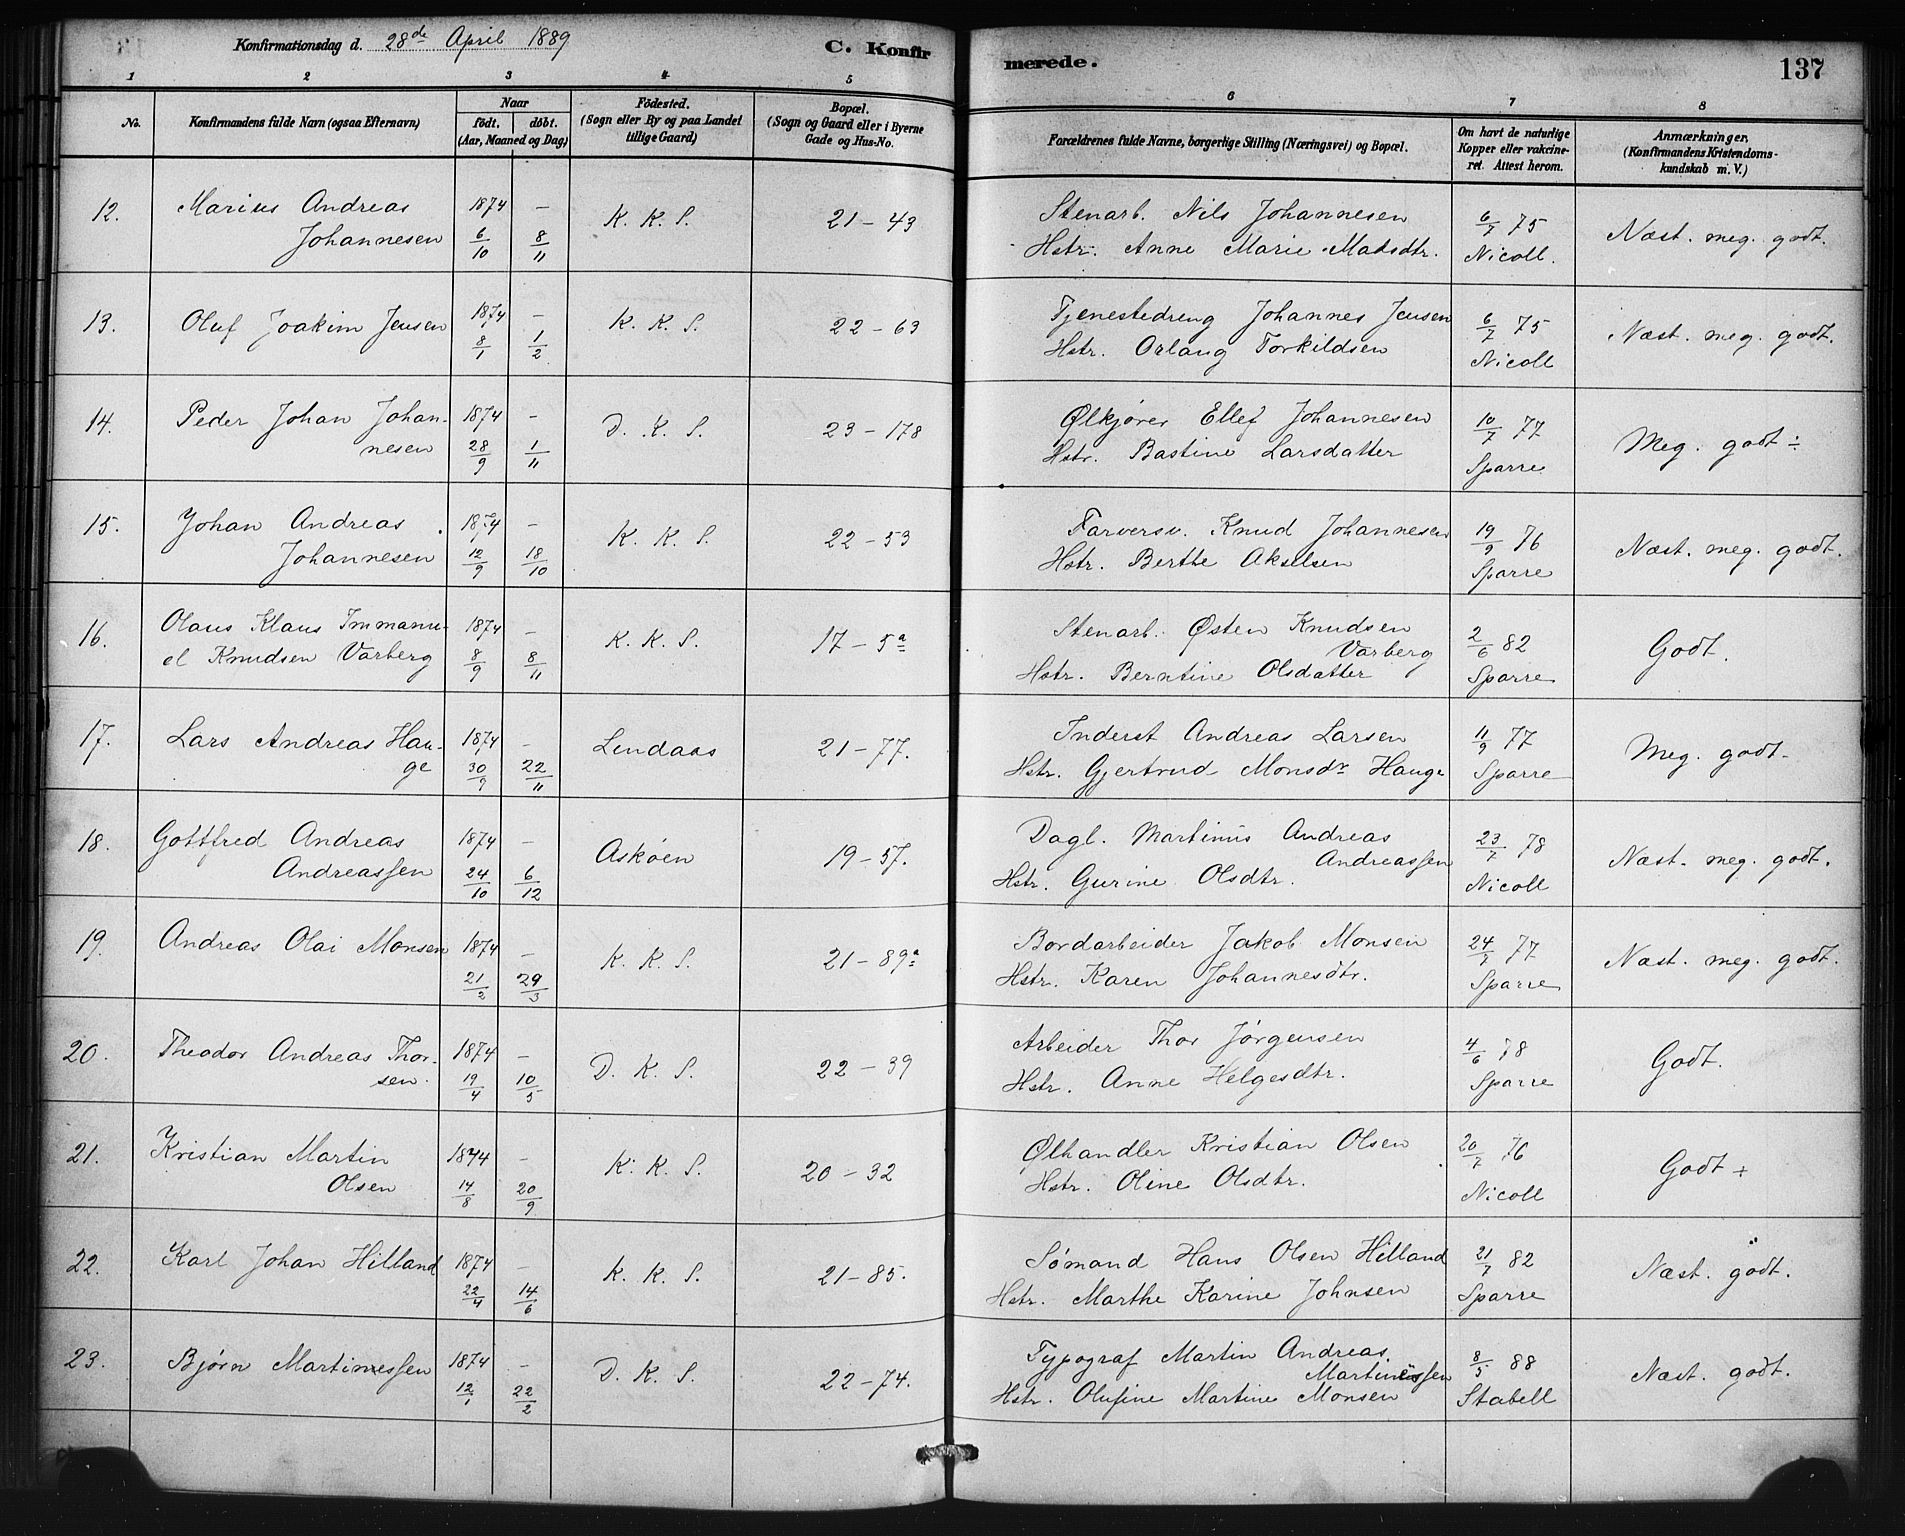 Konfirmationsdag d. 28de April 1889
C. Konfirmerede.
137
1 2 3 4 5 6 7 8
No. | Konfirmandens fulde Navn (ogsaa Efternavn) | Naar født, døbt. (Aar, Maaned og Dag) | Födested. (Sogn eller By og paa Landet tillige Gaard) | Bopæl. (Sogn og Gaard eller i Byerne Gade og Hus-No. | Forældrenes fulde Navne, borgerlige Stilling (Næringsvei) og Bopæl. | Om havt de naturlige Kopper eller vakcineret. Attest herom. | Anmærkninger, (Konfirmandens Kristendomskundskab m. V.)
12. Marius Andreas Johannesen | 1874 6/10 | – 8/11 | K. K. S. | 21–43 | Stenarb. Nils Johannesen
Hstr. Anne Marie Madsdtr. | 6/7 75 Nicoll. | Næst. meg. godt.
13. Oluf Joakim Jensen | 1874 8/1 | – 1/2 | K. K. S. | 22–63 | Tjenestedreng Johannes Jensen
Hstr. Orlaug Torkildsen | 6/7 75 Nicoll | Næst. meg. godt.
14. Peder Johan Johannesen | 1874 28/9 | – 1/11 | D. K. S. | 23–178 | Ølkjører Ellef Johannesen
Hstr. Bastine Larsdatter | 10/7 77 Sparre | Meg. godt ÷
15. Johan Andreas Johannesen | 1874 12/9 | – 18/10 | K. K. S. | 22–53 | Farversv. Knud Johannesen
Hstr. Berthe Akselsen | 19/9 76 Sparre | Næst. meg. godt.
16. Olaus Klaus Immanuel Knudsen Varberg | 1874 8/9 | – 8/11 | K. K. S. | 17–5a | Stenarb. Østen Knudsen Varberg
Hstr. Berntine Olsdatter | 2/6 82 Sparre | Godt.
17. Lars Andreas Hauge | 1874 30/9 | – 22/11 | Lindaas | 21–77. | Inderst Andreas Larsen
Hstr. Gjertrud Monsdr Hauge | 11/9 77 Sparre | Meg. godt.
18. Gottfred Andreas Andreassen | 1874 24/10 | – 6/12 | Askøen | 19–57. | Dagl. Martinus Andreas Andreassen
Hstr. Gurine Olsdtr. | 23/7 78 Nicoll | Næst. meg. godt.
19. Andreas Olai Monsen | 1874 21/2 | – 29/3 | K. K. S. | 21–89a | Bordarbeider Jakob Monsen
Hstr. Karen Johannesdtr. | 24/9 77 Sparre | Næst. meg. godt.
20. Theodor Andreas Thorsen. | 1874 19/4 | – 10/5 | D. K. S. | 22–39 | Arbeider Thor Jørgensen
Hstr. Anne Helgesdtr. | 4/6 78 Sparre | Godt.
21. Kristian Martin Olsen | 1874 14/8 | – 20/9 | K. K. S. | 20–32 | Ølhandler Kristian Olsen
Hstr. Oline Olsdtr. | 20/7 76 Nicoll | Godt +
22. Karl Johan Hilland | 1874 22/4 | – 14/6 | K. K. S. | 21–85. | Sømand Hans Olsen Hilland
Hstr. Marthe Karine Johnsen | 21/7 82 Sparre | Næst. godt.
23. Bjørn Martinessen | 1874 12/1 | – 22/2 | D. K. S. | 22–74. | Typograf Martin Andreas Martinussen
Hstr. Olufine Martine Monsen | 8/5 88 Stabell | Næst. godt.